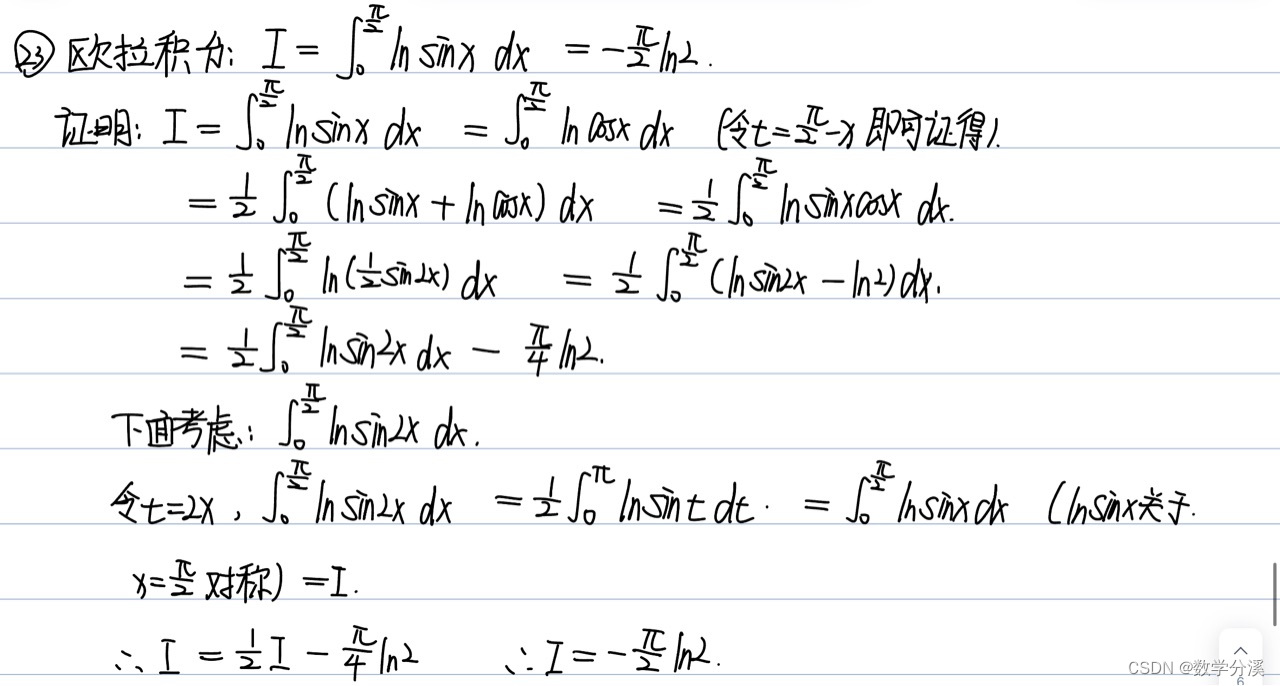 ㉓ 欧拉积分: I = ∫₀^{π/2} ln sinx dx = -π/2 ln2.
证明: I = ∫₀^{π/2} ln sinx dx = ∫₀^{π/2} ln cosx dx (令t=π/2-x 即可证得).
= 1/2 ∫₀^{π/2} (ln sinx + ln cosx) dx = 1/2 ∫₀^{π/2} ln sinxcosx dx.
= 1/2 ∫₀^{π/2} ln(1/2 sin2x) dx = 1/2 ∫₀^{π/2} (ln sin2x - ln2) dx.
= 1/2 ∫₀^{π/2} ln sin2x dx - π/4 ln2.
下面考虑: ∫₀^{π/2} ln sin2x dx.
令t=2x, ∫₀^{π/2} ln sin2x dx = 1/2 ∫₀^{π} ln sint dt. = ∫₀^{π/2} ln sinx dx (ln sinx关于
x=π/2 对称) = I.
∴ I = 1/2 I - π/4 ln2 ∴ I = -π/2 ln2.
CSDN @数学分溪
6